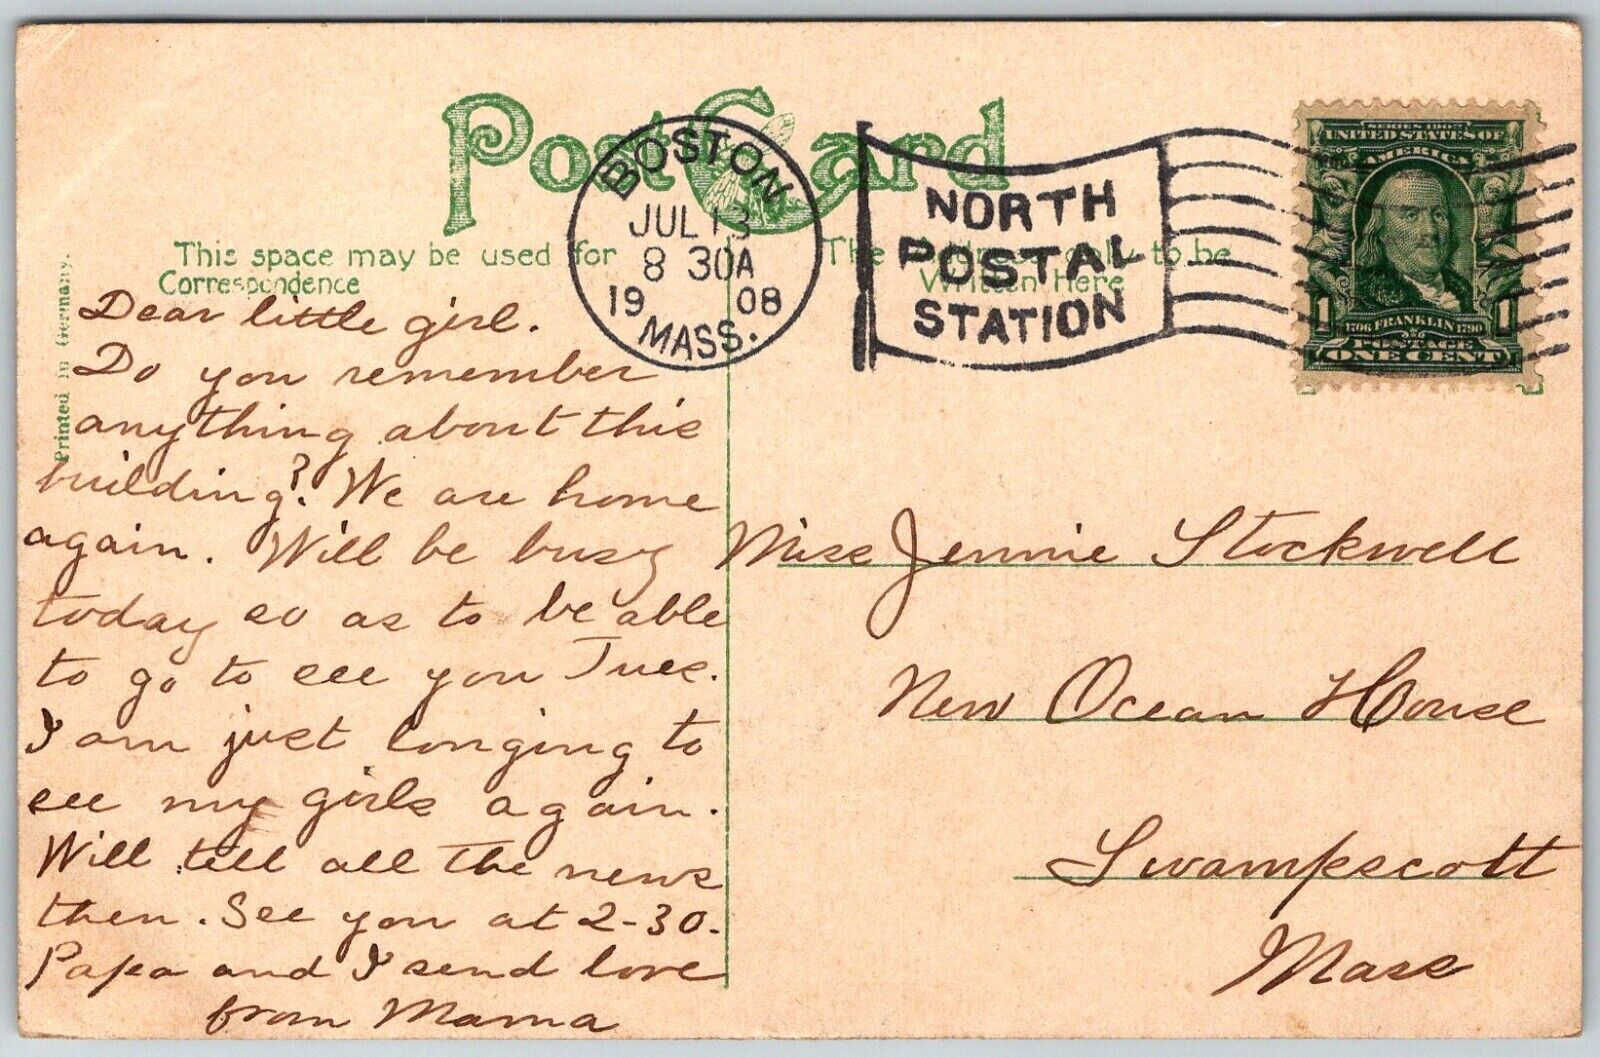 Post Card
BOSTON
JUL 13
8 30A
19 08
MASS.
NORTH
POSTAL
STATION
SERIES 1902
UNITED STATES OF
AMERICA
1 1
1706 FRANKLIN 1790
POSTAGE
ONE CENT
This space may be used for
Correspondence
The Address only to be
Written Here
Printed in Germany.
Dear little girl.
Do you remember
anything about this
building? We are home
again. Will be busy
today so as to be able
to go to see you Tues.
I am just longing to
see my girls again.
Will tell all the news
then. See you at 2-30.
Papa and I send love
from Mama
Miss Jennie Stockwell
New Ocean House
Swampscott
Mass